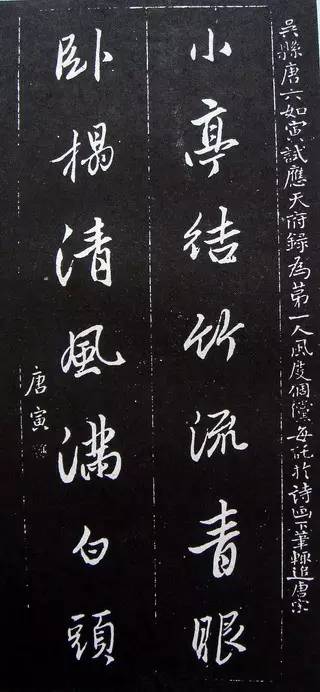 吳縣唐六如寅試應天府錄為第一人風度倜儻每託於詩画下筆輒追唐宋
小亭結竹流青眼
臥榻清風滿白頭
唐寅